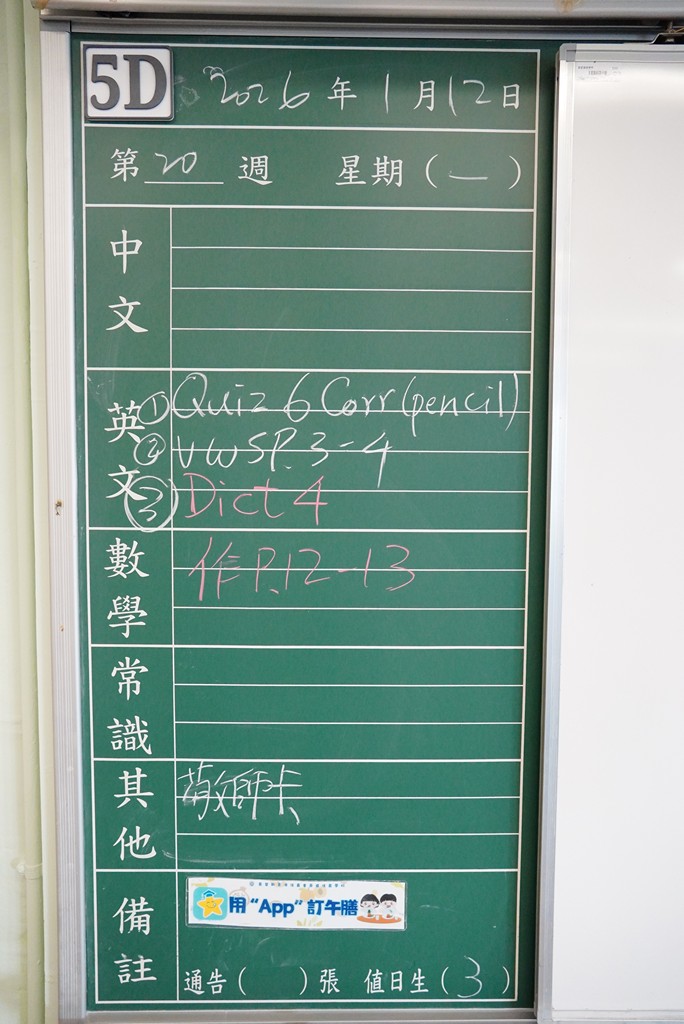 5D 2026年1月12日
第20週 星期(一)
中文
英文
① Quiz 6 Corr(pencil)
② VWS P.3-4
③ Dict 4
數學
作P.12-13
常識
其他
敬師卡
備註
用“App”訂午膳
通告( )張 值日生(3)